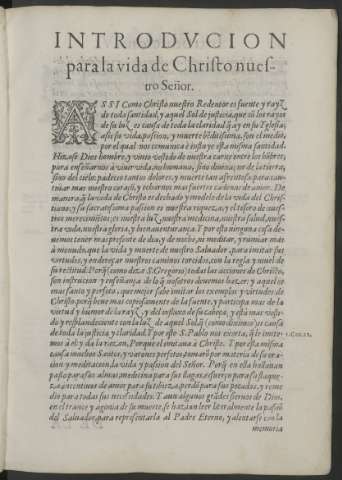 INTRODVCION
para la vida de Christo nues-
tro Señor.
ASSI Como Christo nuestro Redentor es fuente y rayz
de toda santidad, y aquel Sol de justicia, que cõ los rayos
de su luz es causa de toda la claridad q̃ ay en su Yglesia;
assi su vida, passion, y muerte bẽditissima, son el medio
por el qual nos comunica è insta
Hizose Dios hombre, y vino vestido de nuestra carne entre los hõbres,
para enseñarnos à viuir vida no humana, sino diuina; no de la tierra,
sino del cielo: padecio tantos dolores, y muerte tan afrentosa para cau-
tiuar mas nuestro coraçõ, y echarnos mas fuertes cadenas de amor. De
manera q̃ la vida de Christo es dechado y modelo de la vida del Chris-
tiano; y su sacratissima passion es nuestra riqueza, y el tesoro de nues-
tros merecimiẽtos; es nuestra luz, nuestra medicina, nuestra salud, nues-
tra vida, nuestra gloria, y bienauenturança. Y por esto ninguna cosa de-
uemos tener mas presente de dia, y de noche, ni meditar, y rumiar mas
à menudo, que la vida y muerte de nuestro Saluador, para imitar sus
virtudes, y endereçar nuestros caminos torcidos, con la regla y niuel de
su rectitud. Porq̃ (como dize S. Gregorio) todas las acciones de Christo,
son instruccion y enseñança de lo q̃ nosotros deuemos hazer: y aquel es
mas santo y perfeto, que mejor sabe imitar los exemplos y virtudes de
Christo, porq̃ beue mas copiosamente de la fuente, y participa mas de la
virtud y humor de la rayz, y del influxo de su cabeça, y està mas vesti-
do y resplandeciente con la luz de aquel Sol q̃ (como diximos) es causa
de toda la justicia, y claridad. Y por esto S. Pablo nos exorta, q̃ le imite-
mos à el, y da la razon, Porque el imitaua à Christo. Y por esta misma
1.Cor.11.
causa muchos Santos, y varones perfetos tomarõ por materia de su ora-
cion y meditacion, la vida y passion del Señor. Porq̃ en ella hallauan
pasto para sus almas, medicina para sus llagas, esfuerço para su flaque-
za, incentiuos de amor para su tibieza, perdõ para sus pecados, y reme-
dio para todas sus necessidades. Y aun algunos grãdes sieruos de Dios,
en el trance y agonia de su muerte, se hazian leer literalmente la passiõ
del Saluador, para representarla al Padre Eterno, y alentarse con la
memoria